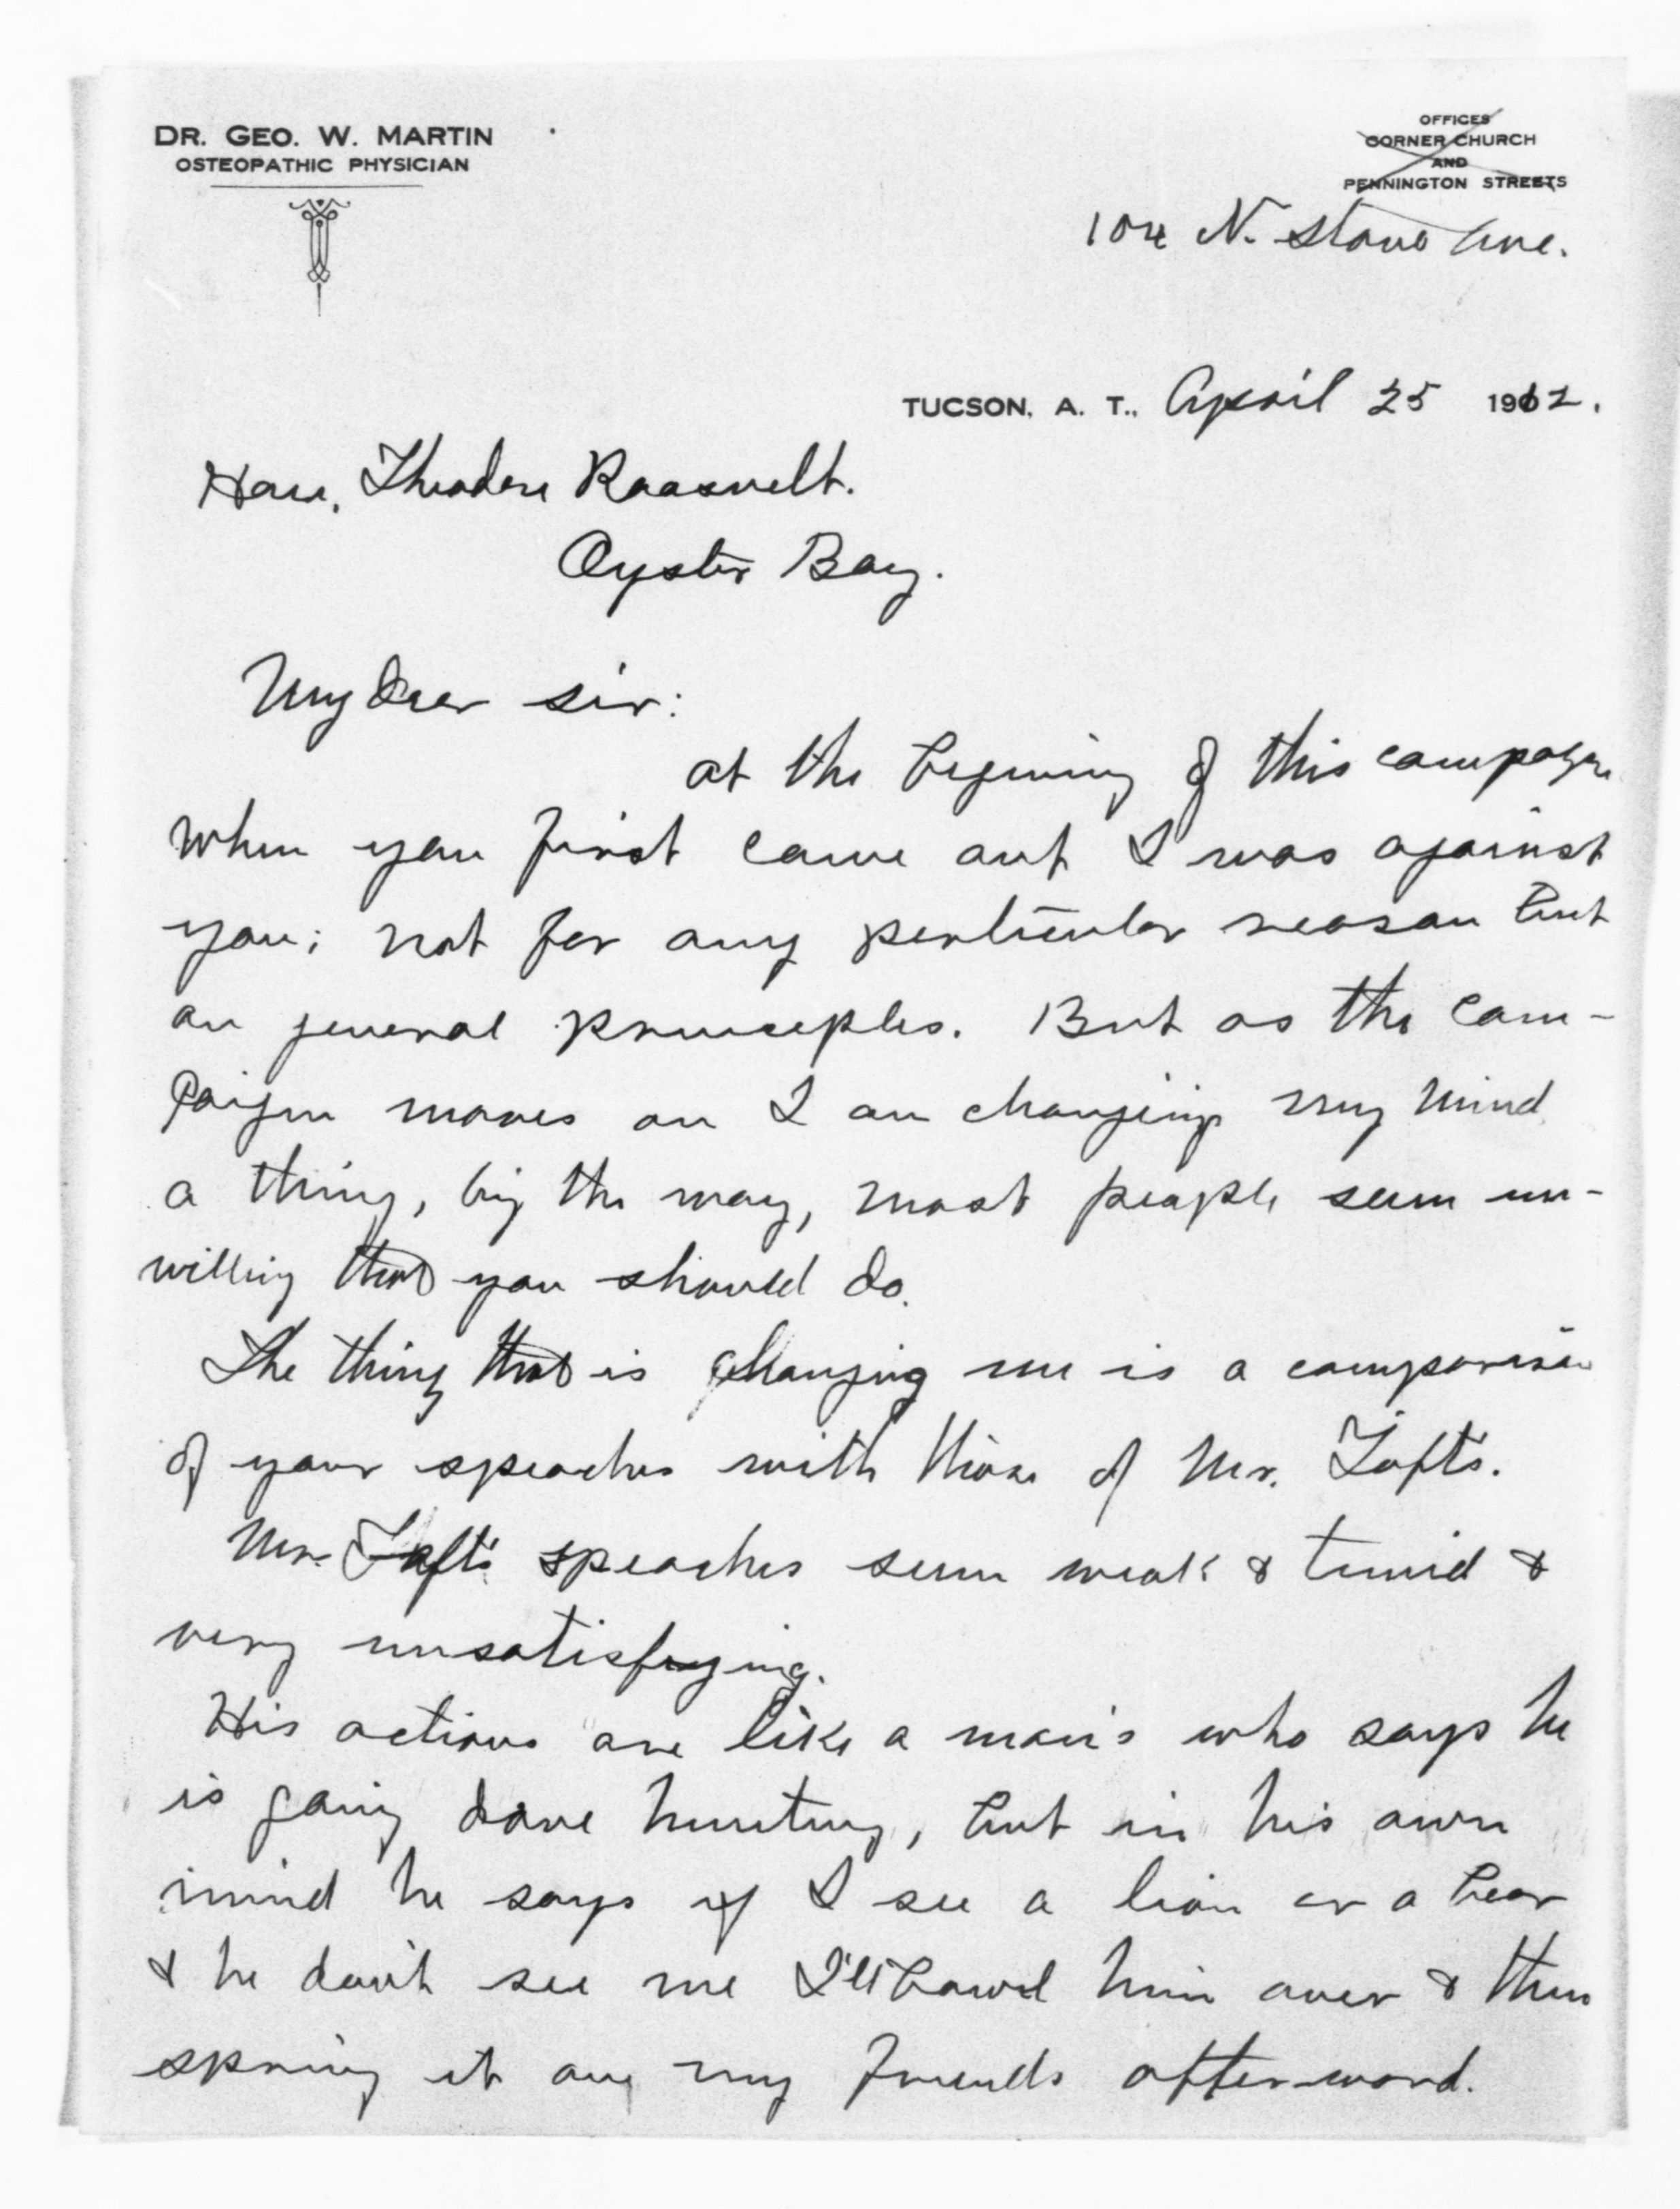 DR. GEO. W. MARTIN
OSTEOPATHIC PHYSICIAN
OFFICES
CORNER CHURCH
AND
PENNINGTON STREETS
104 N. Stone Ave.
TUCSON, A. T., April 25 1912.
Hon. Theodore Roosevelt.
Oyster Bay.
My dear sir:
at the begining of this campaign
when you first came out I was against
you; not for any perticular reason but
on general princeples. But as the cam-
paign moves on I am changing my mind
a thing, by the way, most people seem un-
willing that you should do.
The thing that is changing me is a comparison
of your speaches with those of Mr. Taft's.
Mr. Taft's speaches seem weak & timid &
very unsatisfying.
His actions are like a man's who says he
is going dove hunting, but in his own
mind he says if I see a lion or a bear
& he don't see me I'll bowl him over & then
spring it on my friends afterward.